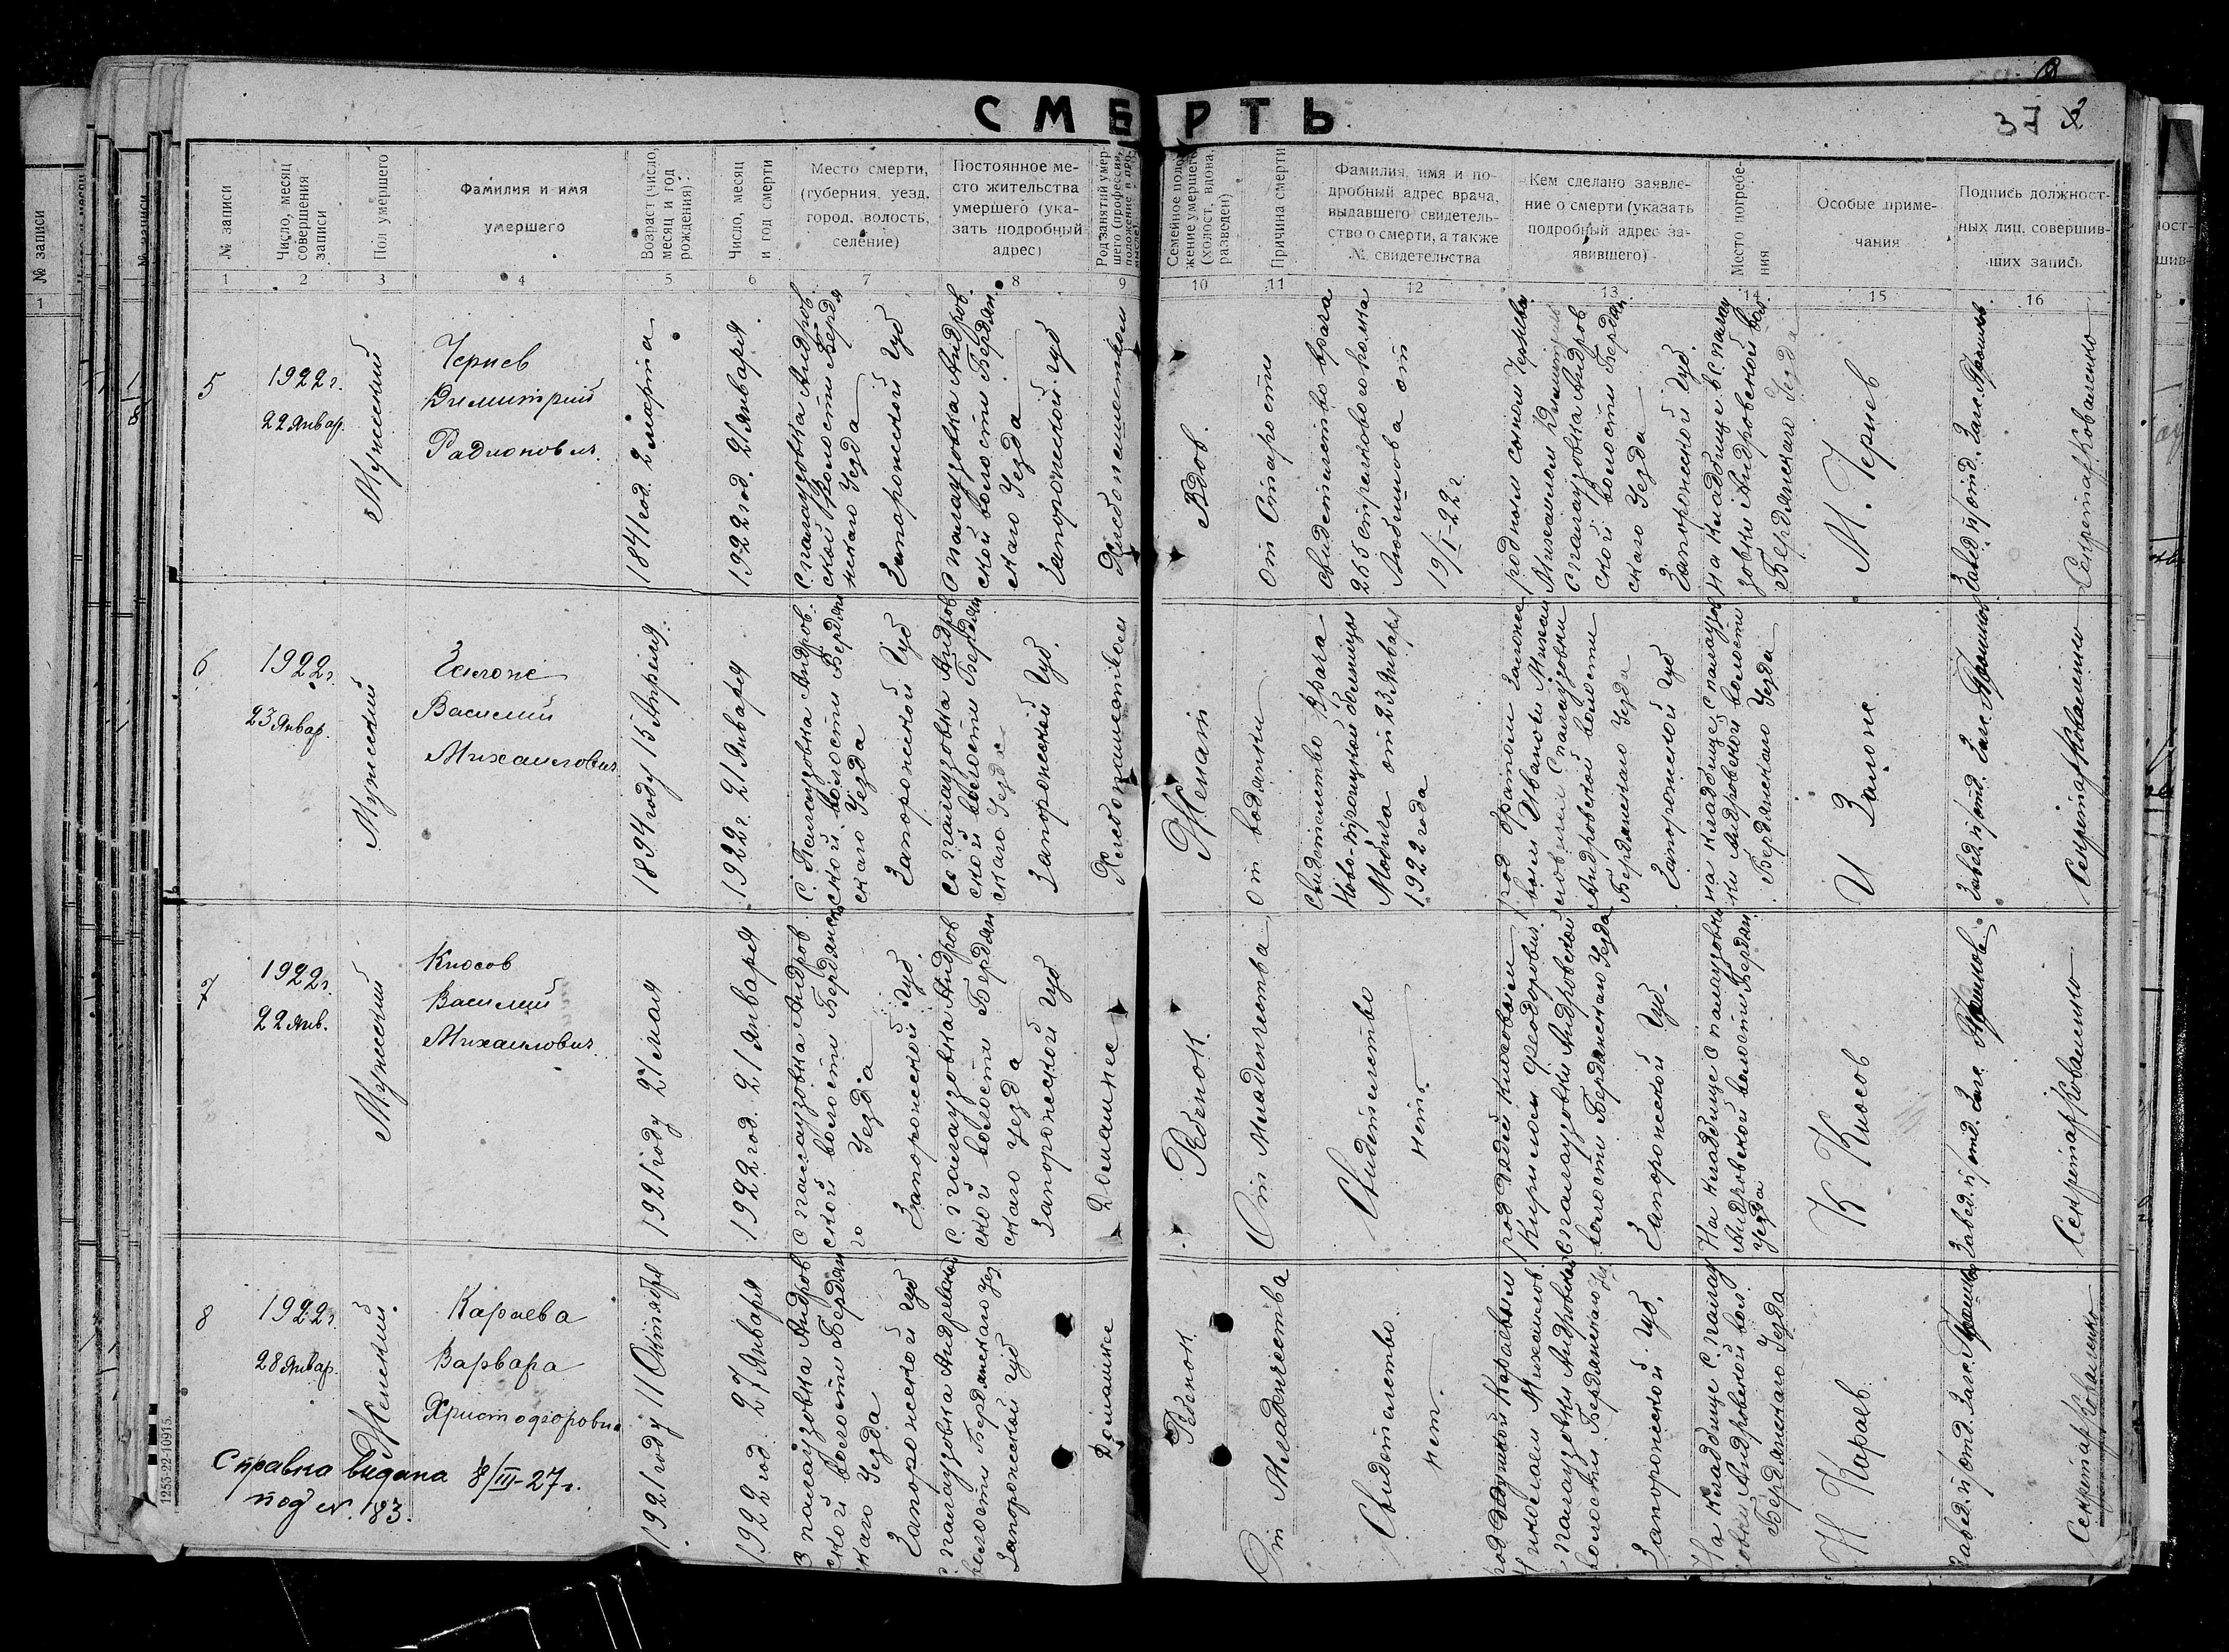 СМЕРТЬ
37 2
№ записи
Число, месяц совершения записи
Пол умершего
Фамилия и имя умершего
Возраст (число, месяц и год рождения)
Число, месяц и год смерти
Место смерти, (губерния, уезд, город, волость, селение)
Постоянное место жительства умершего (указать подробный адрес)
Род занятий умершего (профессия, положение в промысле)
Семейное положение умершего (холост, вдова, разведен)
Причина смерти
Фамилия, имя и подробный адрес врача, выдавшего свидетельство о смерти, а также № свидетельства
Кем сделано заявление о смерти (указать подробный адрес заявившего)
Место погребения
Особые примечания
Подпись должностных лиц, совершивших запись
1 2 3 4 5 6 7 8 9 10 11 12 13 14 15 16
5
1922 г.
22 Январ.
Мужеский
Чернев
Димитрий
Радионович
1841 год. 2 марта
1922 год. 21 января
с Палаузовка Андров
ской волости Бердя
нскаго Уезда
Запорожской Губ
с Палаузовка Андров
ской волости Бердян
скаго Уезда
Запорожской губ
Хлебопашеством
Вдов.
От Старости
Свидетельство врача
255 стрелковаго полка
Любимова от
19/I-22 г
родным сыном
Михаилом
с Палаузовка Андров
ской волости Бердян
скаго Уезда
Запорожской Губ.
На Кладбище в с. Палау
зовки Андровской вол.
Бердянскаго Уезда
М. Чернев
Завед. п/отд. Загс
Секретарь Коваленко
6
1922 г.
23 Январ.
Мужеский
Василий
Михаилович
1894 году 15 Апреля
1922 г. 21 Января
с. Палаузовка Андров
ской волости Бердян
скаго Уезда
Запорожской Губ
с Палаузовка Андров
ской волости Бердян
скаго Уезда
Запорожской Губ.
Хлебопашеством
Женат
От водянки
Свидетельство Врача
Ново-Троицкой больницы
от 23 Января
1922 года
род братом
Иваном
с Палаузовки
Андровской волости
Бердянскаго Уезда
Запорожской Губ
На кладбище с Палаузов
ки Андровской волости
Бердянскаго Уезда
И Запоне
Завед. п/отд. Загс
Секретарь Коваленко
7
1922 г.
22 Янв.
Мужеский
Киосов
Василий
Михаилович
1921 году 21 мая
1922 год. 21 января
с Палаузовка Андров
ской волости Бердянска
го Уезда
Запорожской Губ.
с Палаузовка Андров
ской волости Бердян
скаго Уезда
Запорожской Губ
Домашнее
Ребенок.
От Младенчества
Свидетельство
нет.
род дядей Киосовым
Кирилом Феодорович
с Палаузовки Андровской
волости Бердянскаго Уезда
Запорожской Губ.
На кладбище с Палаузовки
Андровской волости Бердян
Уезда
К Киосов
Завед. п/отд. Загс
Секретарь Коваленко
8
1922 г.
28 Январ.
Женский.
Караева
Варвара
Христофоровна
1921 году 11 Октября
1922 год. 27 Января
с Палаузовка Андров
ской волости Бердян
скаго Уезда
Запорожской Губ
с Палаузовка Андревской
волости Бердянскаго Уез
Запорожской Губ
Домашнее
Ребенок.
От Младенчества
Свидетельство
нет.
род дедушкой Караевым
Николаем Михаилов.
с Палаузовки Андровской
волости Бердянскаго Уез
Запорожской Губ.
На Кладбище с. Палау
зовки Андровской вол.
Бердянскаго Уезда
Н Караев
Завед. п/отд. Загс
Секретарь Коваленко
Справка видана 8/III-27 г.
под N. 183.
1253-22-10915.